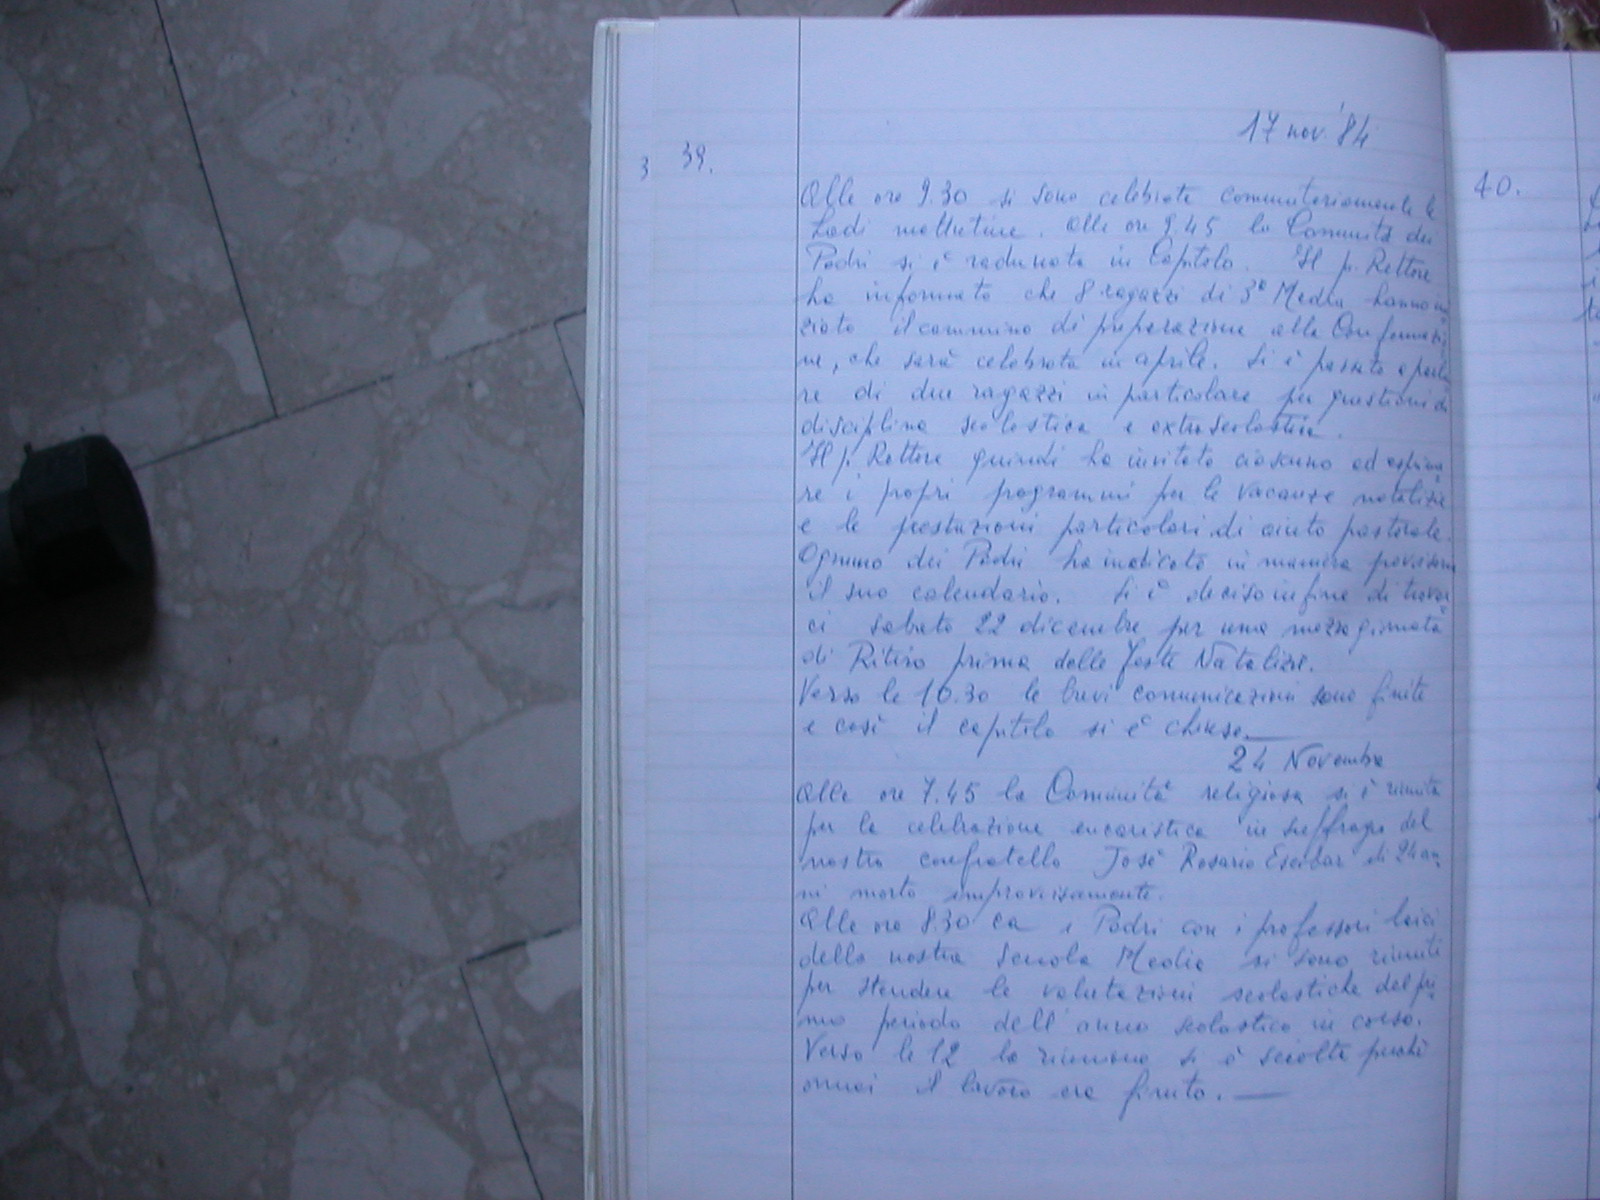 17 nov. '84
3 39.
Alle ore 9.30 si sono celebrate comunitariamente le
Lodi mattutine. Alle ore 9.45 la Comunità dei
Padri si è radunata in Capitolo. Il p. Rettore
ha informato che 8 ragazzi di 3ª Media hanno ini
ziato il cammino di preparazione alla Confermazio
ne, che sarà celebrata in aprile. Si è passato a parla
re di due ragazzi in particolare per questioni di
disciplina scolastica e extrascolastica.
Il p. Rettore quindi ha invitato ciascuno ad esprime
re i propri programmi per le vacanze natalizie
e le prestazioni particolari di aiuto pastorale.
Ognuno dei Padri ha indicato in maniera provvisoria
il suo calendario. Si è deciso infine di trovar
ci sabato 22 dicembre per una mezza giornata
di Ritiro prima delle feste Natalizie.
Verso le 10.30 le brevi comunicazioni sono finite
e così il capitolo si è chiuso.
24 Novembre
Alle ore 7.45 la Comunità religiosa si è riunita
per la celebrazione eucaristica in suffragio del
nostro confratello Josè Rosario Escobar di 24 an
ni morto improvvisamente.
Alle ore 8.30 ca i Padri con i professori laici
della nostra Scuola Media si sono riuniti
per stendere le valutazioni scolastiche del pri
mo periodo dell'anno scolastico in corso.
Verso le 12 la riunione si è sciolta perché
ormai il lavoro era finito.
40.